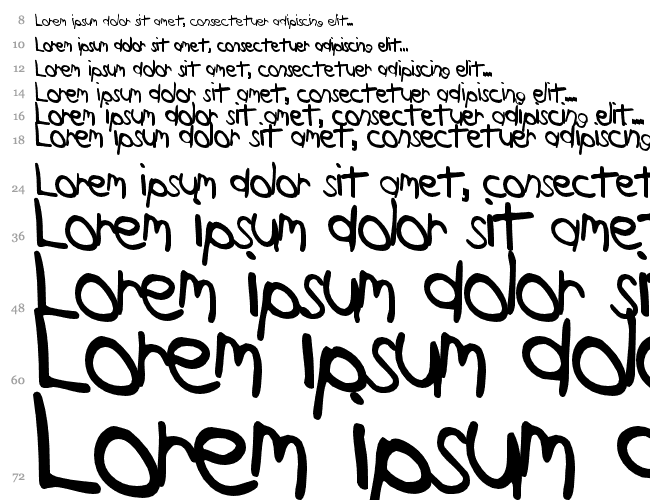 8 Lorem ipsum dolor sit amet, consectetuer adipiscing elit...
10 Lorem ipsum dolor sit amet, consectetuer adipiscing elit...
12 Lorem ipsum dolor sit amet, consectetuer adipiscing elit...
14 Lorem ipsum dolor sit amet, consectetuer adipiscing elit...
16 Lorem ipsum dolor sit amet, consectetuer adipiscing elit...
18 Lorem ipsum dolor sit amet, consectetuer adipiscing
24 Lorem ipsum dolor sit amet, consectet
36 Lorem ipsum dolor sit ame
48 Lorem ipsum dolor si
60 Lorem ipsum dolo
72 Lorem ipsum